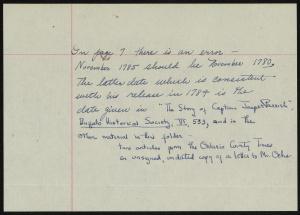 On page 7 there is an error –
November 1785 should be November 1780,
the latter date which is consistent
with his release in 1784 is the
date given in "The Story of Captain Jasper Parrish"
Buffalo Historical Society, VI, 533, and in the
other material in this folder –
two articles from the Ontario County Times
an unsigned, undated copy of a letter to Mr.